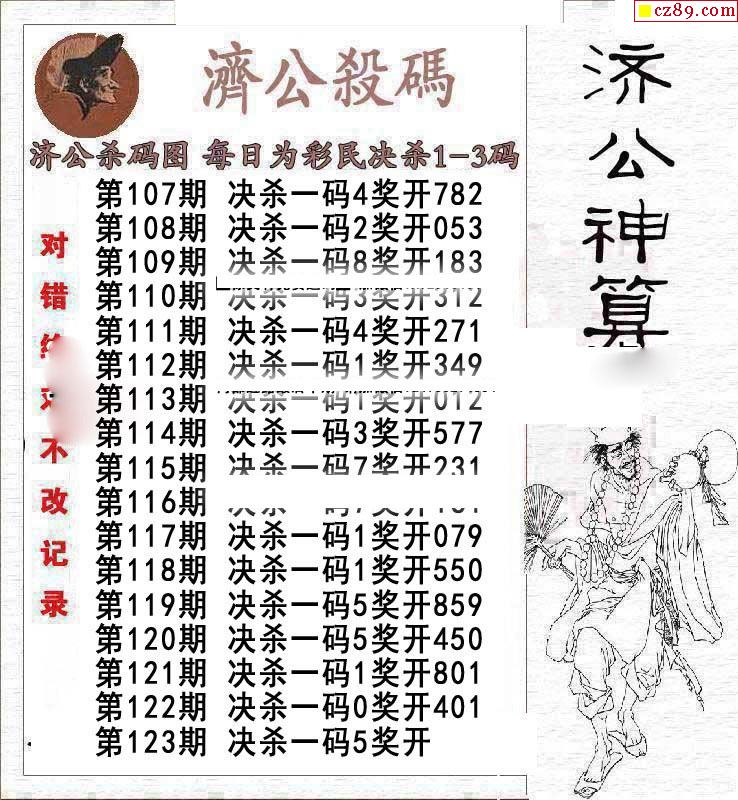 cz89.com
濟公殺碼
济公杀码图 每日为彩民决杀1-3码
第107期 决杀一码4奖开782
第108期 决杀一码2奖开053
第109期 决杀一码8奖开183
第110期 决杀一码3奖开312
第111期 决杀一码4奖开271
第112期 决杀一码1奖开349
第113期 决杀一码1奖开012
第114期 决杀一码3奖开577
第115期 决杀一码7奖开231
第116期
第117期 决杀一码1奖开079
第118期 决杀一码1奖开550
第119期 决杀一码5奖开859
第120期 决杀一码5奖开450
第121期 决杀一码1奖开801
第122期 决杀一码0奖开401
第123期 决杀一码5奖开
对错
不改记录
济公神算